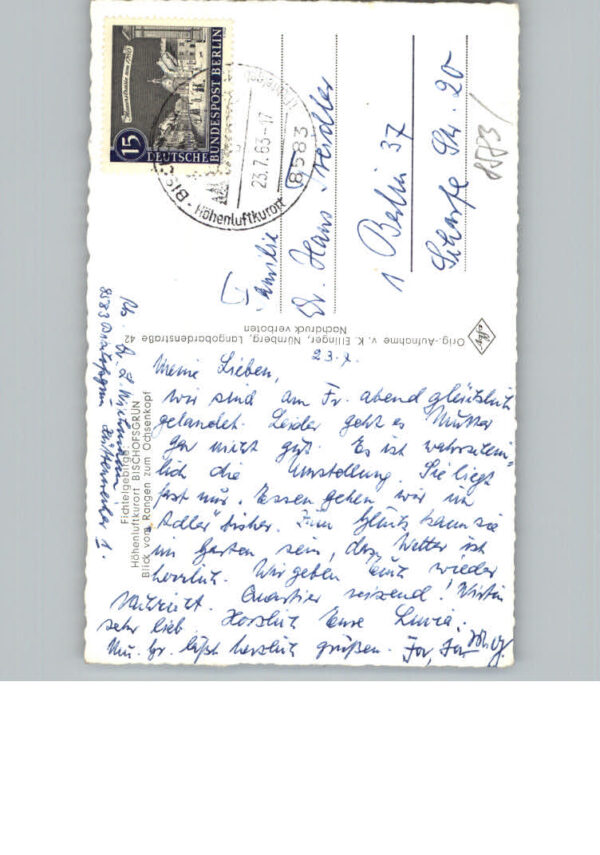 15
DEUTSCHE
BUNDESPOST BERLIN
23.7.63-17
8583
Höhenluftkurort
Familie
Dr. Hans
1 Berlin 37
Scharfe Str. 20
Orig.-Aufnahme v. K. Ellinger, Nürnberg, Langobardenstraße 42
Nachdruck verboten
Fichtelgebirge.
Höhenluftkurort BISCHOFSGRÜN
Blick vom Rangen zum Ochsenkopf
23.7.
Meine Lieben,
wir sind am Fr. abend glücklich
gelandet. Leider geht es Mutter
gar nicht gut. Es ist wahrschein-
lich die Umstellung. Sie liegt
fast nur. Essen gehen wir in
"Adler" bisher. Zum Glück kann sie
im Garten sein, das Wetter ist
herrlich. Wir geben Euch wieder
Nachricht. Quartier reizend! Wirtin
sehr lieb. Herzlich Eure
läßt herzlich grüßen.